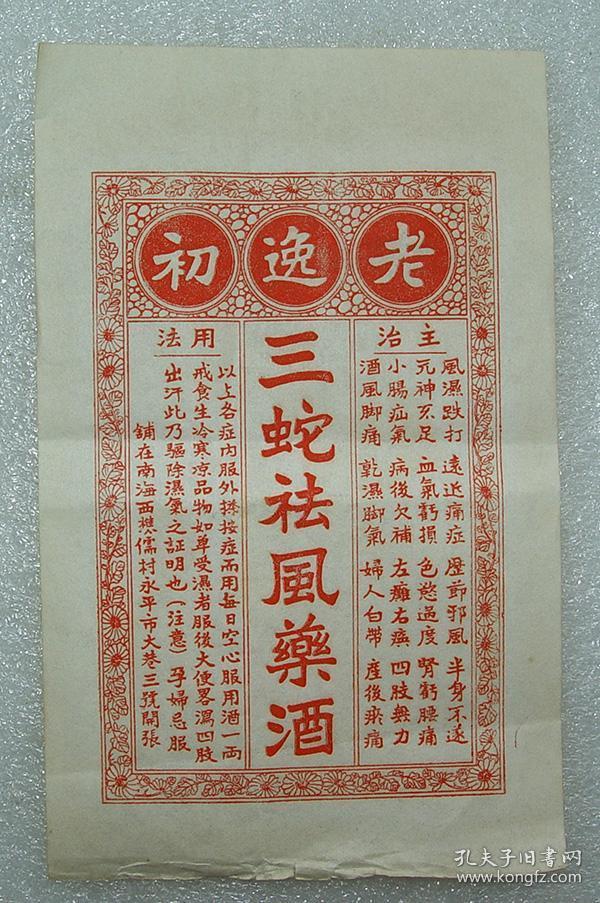 老逸初
主治
風濕跌打 遠近痛症 歷節邪風 半身不遂
元神不足 血氣虧損 色慾過度 腎虧腰痛
小腸疝氣 病後欠補 左癱右瘓 四肢無力
酒風脚痛 乾濕脚氣 婦人白帶 產後瘀痛
三蛇祛風藥酒
用法
以上各症內服外搽按症而用每日空心服用酒一両
戒食生冷寒凉品物如単受濕者服後大便畧瀉四肢
出汗此乃驅除濕氣之証明也(注意)孕婦忌服
舖在南海西樵儒村永平市大巷三號開張
孔夫子旧書网
www.kongfz.com